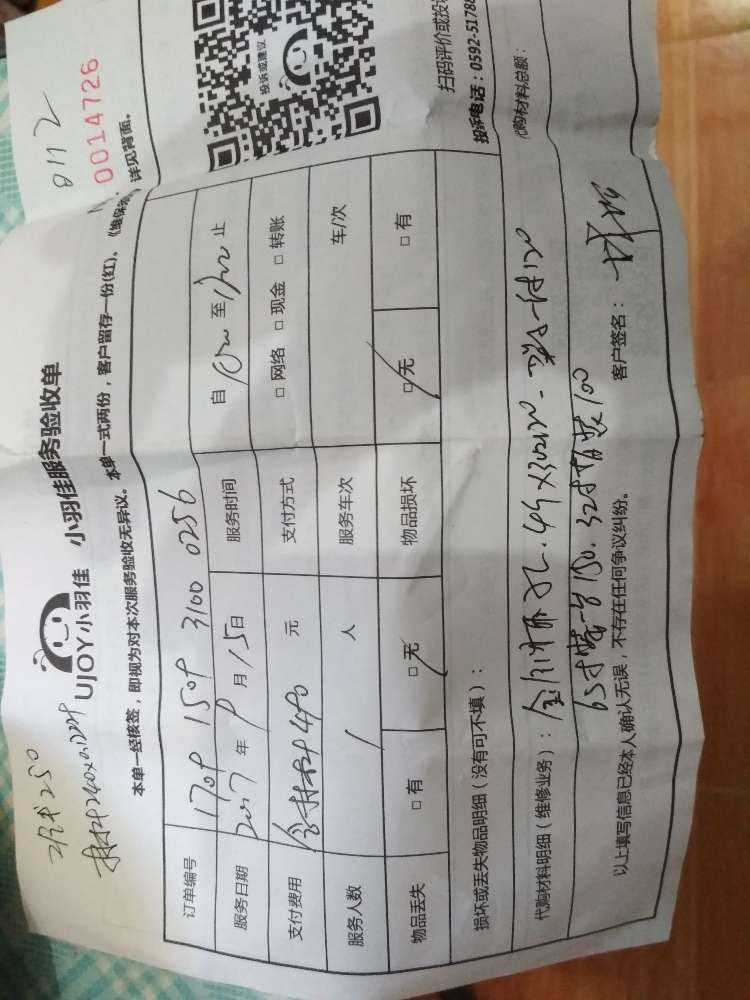 0112
0014726
UJOY小羽佳 小羽佳服务验收单
本单一经核签,即视为对本次服务验收无异议。本单一式两份,客户留存一份(红)。《维保 详见背面。
投诉或建议
扫码评价或投诉
投诉电话:0592-5178
250
材料240
订单编号 1709 1509 3100 0256
服务日期 2017年9月15日 服务时间 自 至 止
支付费用 含材料490元 支付方式 □网络 □现金 □转账
服务人数 1人 服务车次 车/次
物品丢失 □有 □无 物品损坏 □无 □有
损坏或丢失物品明细(没有可不填):
代购材料明细(维修业务): 代购材料总额:
65寸 150. 32寸 100
以上填写信息已经本人确认无误,不存在任何争议纠纷。 客户签名: